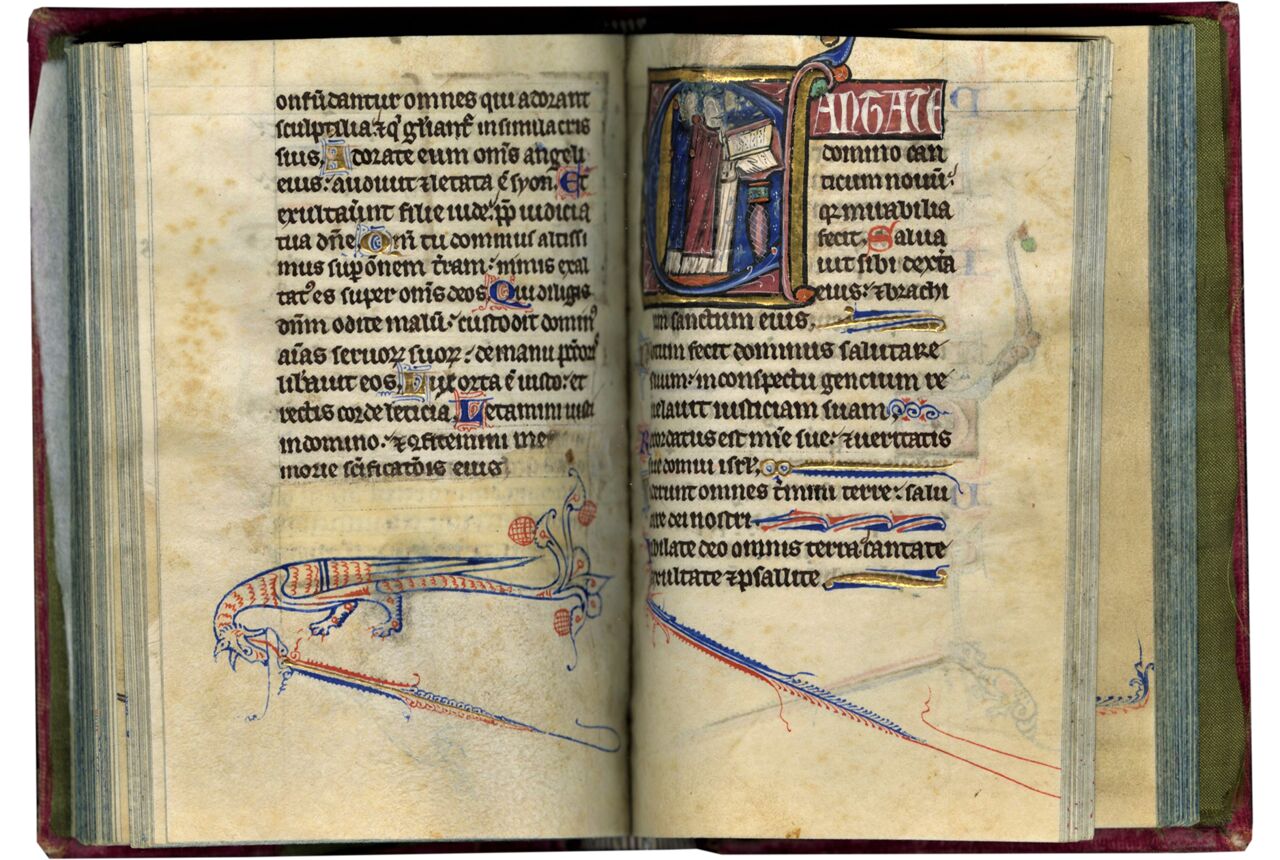 onfūdantur omnes qui adorant
sculptilia ⁊ q̇ gl̄iant̄ in simulacris
suis. Adorate eum om̄s angeli
eius: audiuit ⁊ letata ē syon. Et
exultauˉunt filie iude: ꝓp iudicia
tua dn̄e. Qm̄ tu dominus altissi
mus suꝑ om̄nem t̄ram: nimis exal
tatꝰ es super om̄is deos. Qui diligitis
dn̄m odite malū: custodit dominꝰ
aīas seruoꝝ suoꝝ: de manu
lib̄auit eos. Lux orta ē iusto: et
rectis corde leticia. Letamini iusti
in domino: ⁊ ꝯfitemini me
morie sc̄ificatōis eius
CANTATE
domino can
ticum nouū:
qꝛ mirabilia
fecit. Salua
uit sibi dext̄a
eius: ⁊ brachi
um sanctum eius.
Notum fecit dominus salutare
suum: in conspectu gencium re
uelauit iusticiam suam.
Recordatus est mīe sue: ⁊ ueritatis
sue domui isrl̄.
Viderunt omnes t̄mini terre: salu
tare dei nostri.
Iubilate deo omnis terra: cantate
⁊ exultate ⁊ psallite.